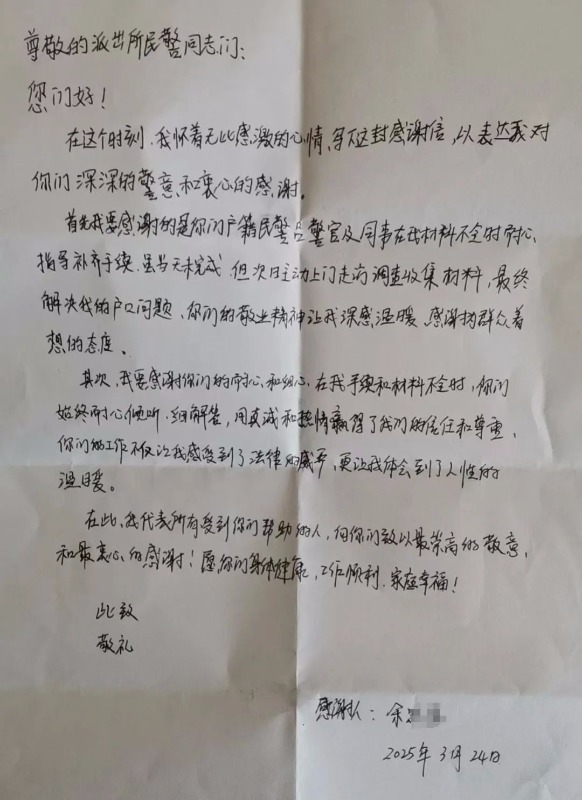 尊敬的派出所民警同志们:
您们好!
在这个时刻,我怀着无比感激的心情,写下这封感谢信,以表达我对
你们深深的警意和衷心的感谢。
首先我要感谢的是你们户籍民警吕警官及同事在我材料不全时耐心
指导补齐手续,虽当天未完成,但次日主动上门走访调查收集材料,最终
解决我的户口问题、你们的敬业精神让我深感温暖,感谢为群众着
想的态度。
其次,我要感谢你们的耐心和细心,在我手续和材料不全时,你们
始终耐心倾听,细解答,用真诚和热情赢得了我们的信任和尊重,
你们的工作不仅让我感受到了法律的威严,更让我体会到了人性的
温暖。
在此,我代表所有受到你们帮助的人,向你们致以最崇高的敬意,
和最衷心的感谢!愿你们身体健康,工作顺利,家庭幸福!
此致
敬礼
感谢人:余
2025年3月24日